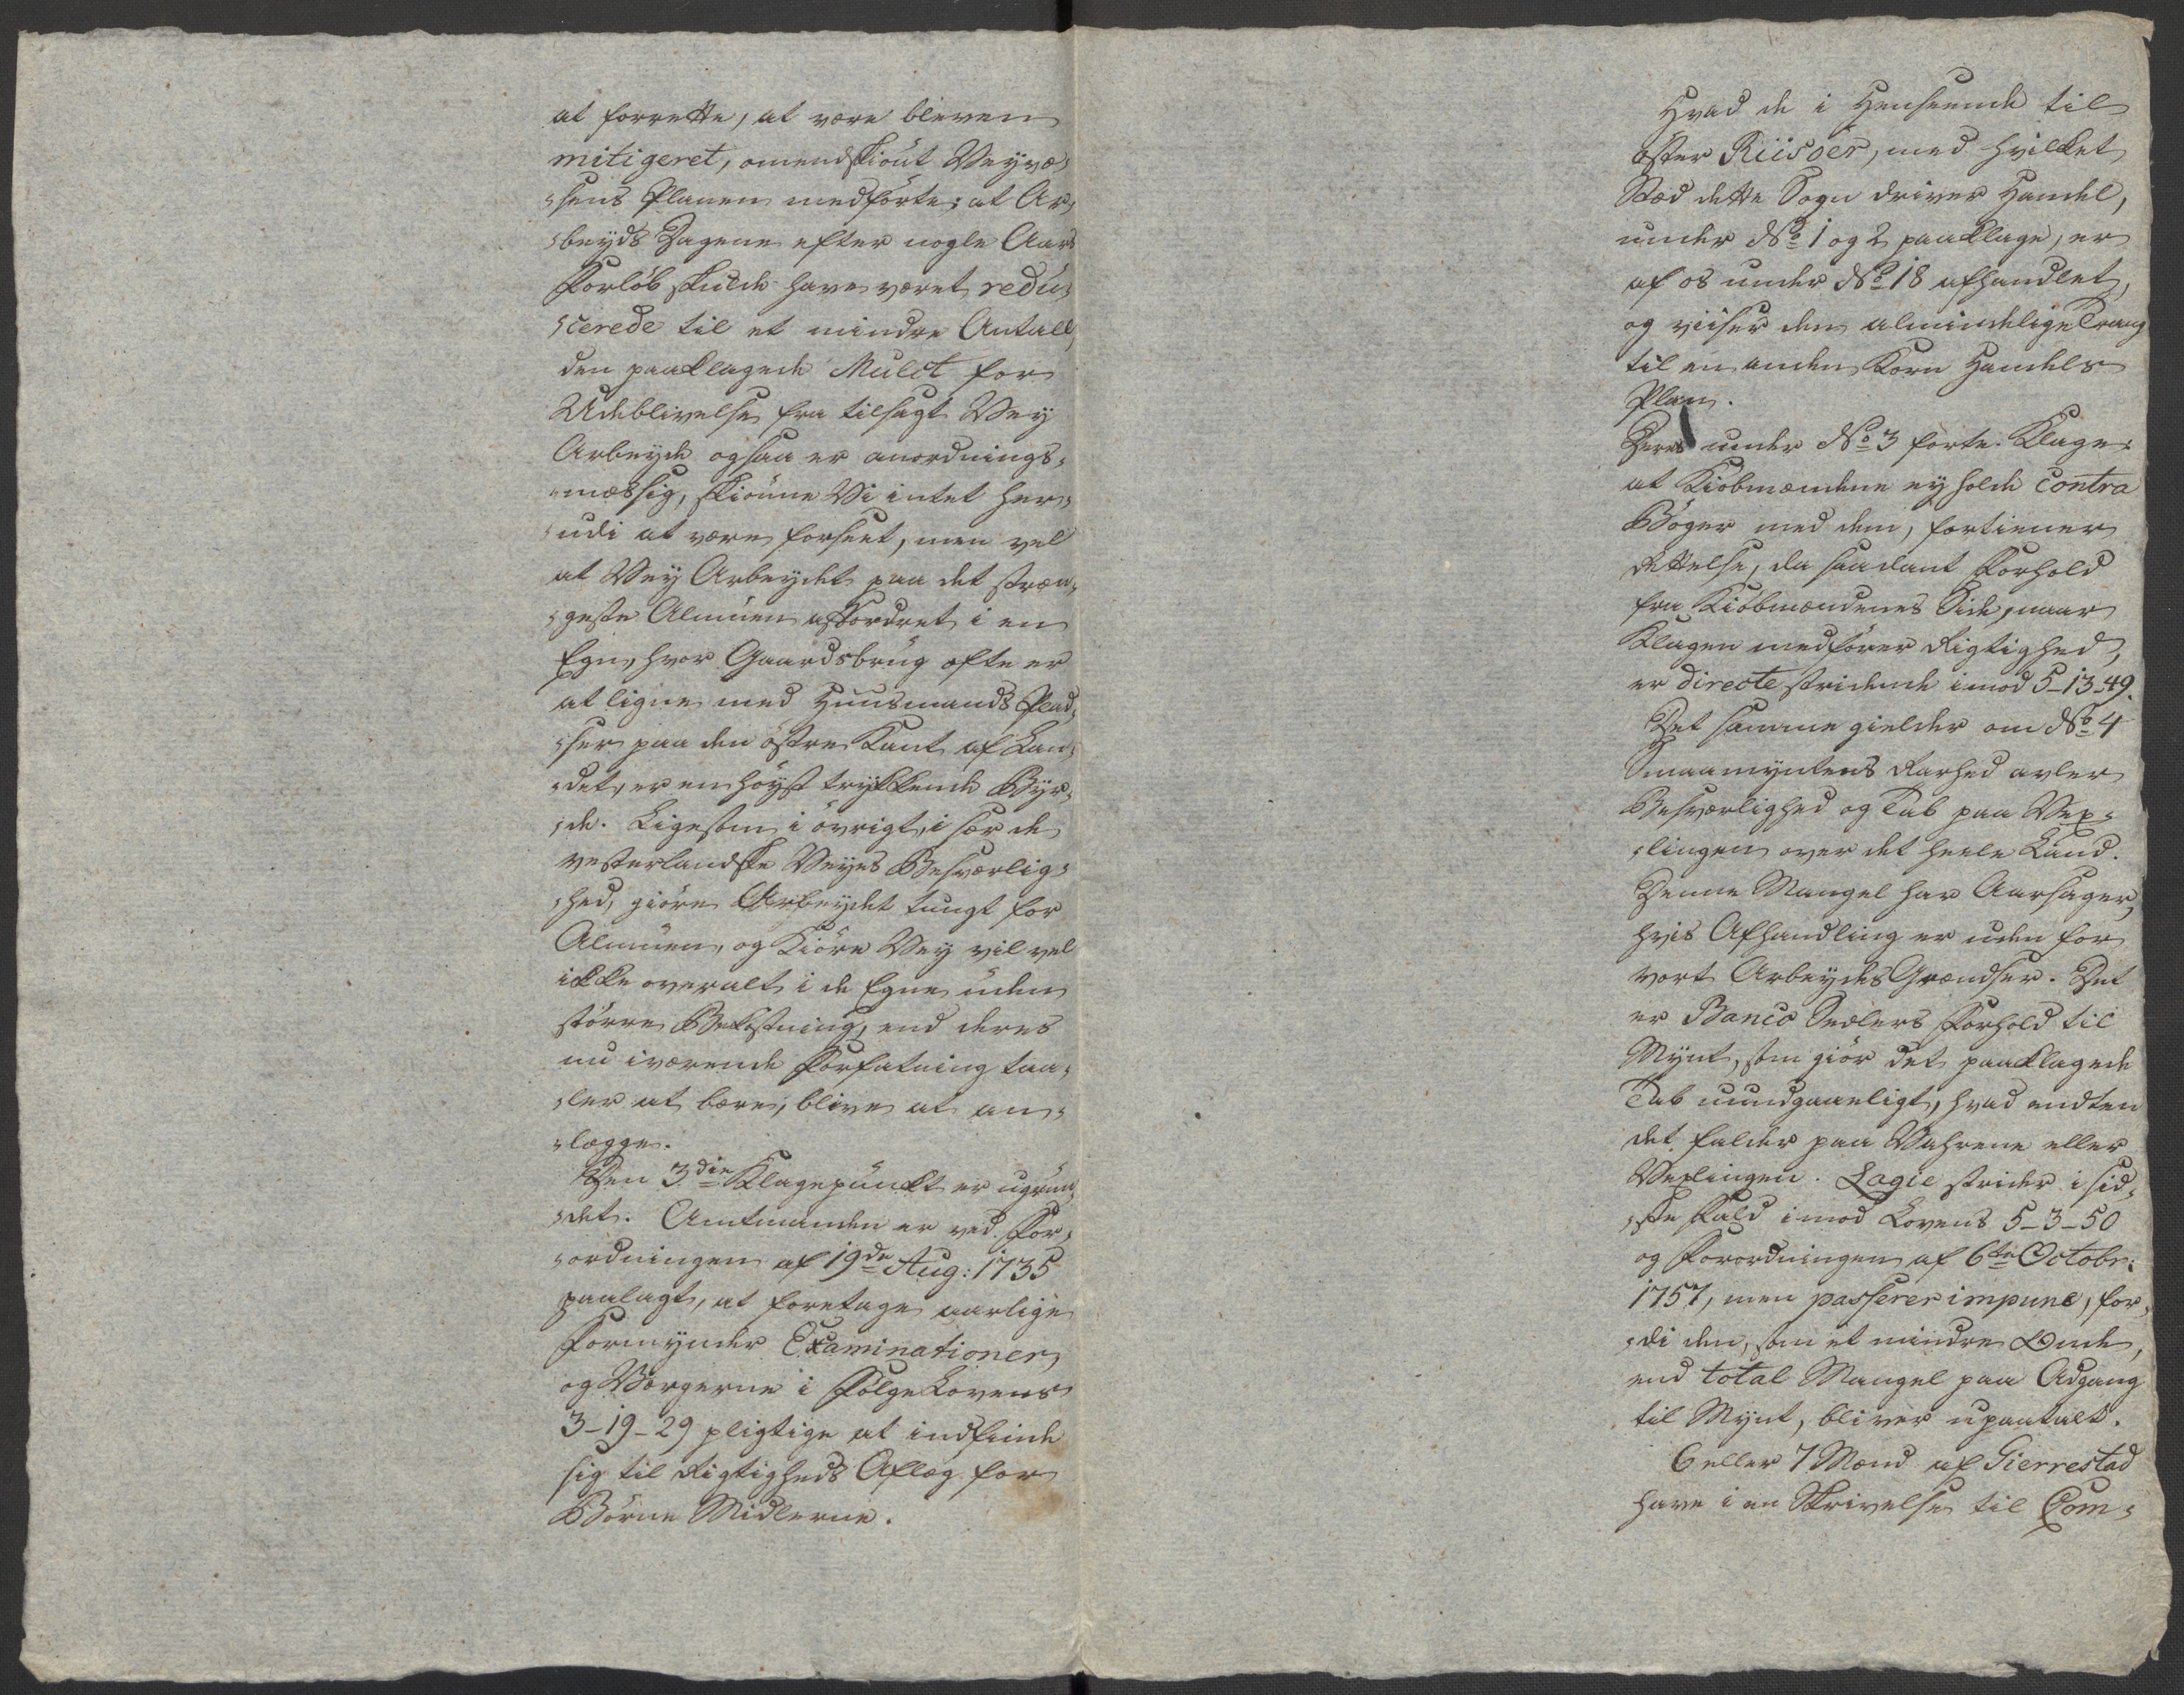 at forrette, at være bleven
mitigeret, omendskiönt Veyvæ-
-sens Planen medförte; at Ar-
-beyds Dagene efter nogle Aars
Forlöb skulde have været redu-
-cerede til et mindre Antall,
den paaklagede Mulct for
Udeblivelse fra tilsagt Vey
Arbeyde ogsaa er anordnings-
-mæssig, skiönne Vi intet her-
-udi at være forseet, men vel
at Vey Arbeydet paa det stræn-
-geste Almuen affordret i en
Egn, hvor Gaardsbrug ofte er
at ligne med Huusmands Plad-
-ser paa den östre Kant af Lan-
-det, er en höyst trykkende Byr-
-de. Ligesom i övrigt, i sær de
vesterlandske Veyes Besværlig-
-hed, giöre Arbeydet tungt for
Almuen, og Kiöre Vey vil vel
ikke overalt i de Egne uden
större Bekostning, end deres
nu iværende Forfatning taa-
-ler at bære, blive at an-
-lægge.
Den 3die Klagepunkt er ugrun-
-det. Amtmanden er ved For-
-ordningen af 19de Aug: 1735
paalagt, at foretage aarlige
Formynder Examinationer,
og Værgerne i Fölge Lovens
3-19-29 pligtige at indfinde
sig til Rigtigheds Aflæg for
Börne Midlerne.
Hvad de i Henseende til
öster Riisöer, med hvilket
Stæd dette Sogn driver Handel,
under No 1 og 2 paaklage, er
af os under No 18 afhandlet,
og viiser den almindelige Trang
til en anden Korn Handels
Plan.
Deres under No 3 förte Klage:
at Kiöbmændene ey holde Contra
Böger med dem, fortiener
Rettelse, da saadant Forhold
fra Kiöbmændenes Side, naar
Klagen medförer Rigtighed,
er directe stridende imod 5-13-49.
Det samme gielder om No 4
Smaamyntens Rarhed avler
Besværlighed og Tab paa Vex-
-lingen over det heele Land.
Denne Mangel har Aarsager,
hvis Afhandling er uden for
vort Arbeydes Grændser. Det
er Banco Sedlers Forhold til
Mynt, som giör det paaklagede
Tab uundgaaeligt, hvad endten
det falder paa Vahrene eller
Vexlingen. Lagie strider i sid-
-ste Fald imod Lovens 5-3-50
og Forordningen af 6te Octobr:
1757, men passerer impune, for-
-di den, som et mindre Onde,
end total Mangel paa Adgang
til Mynt, bliver upaatalt.
6 eller 7 Mænd af Gierrestad
have i en Skrivelse til Com-